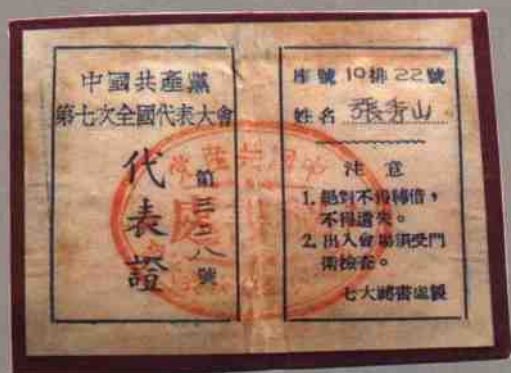 中國共產黨
第七次全國代表大會
代表證
第三二八號
座號 19排 22號
姓名 張秀山
注意
1. 絕對不得轉借，
不得遺失。
2. 出入會場須受門
衛檢查。
七大祕書處製